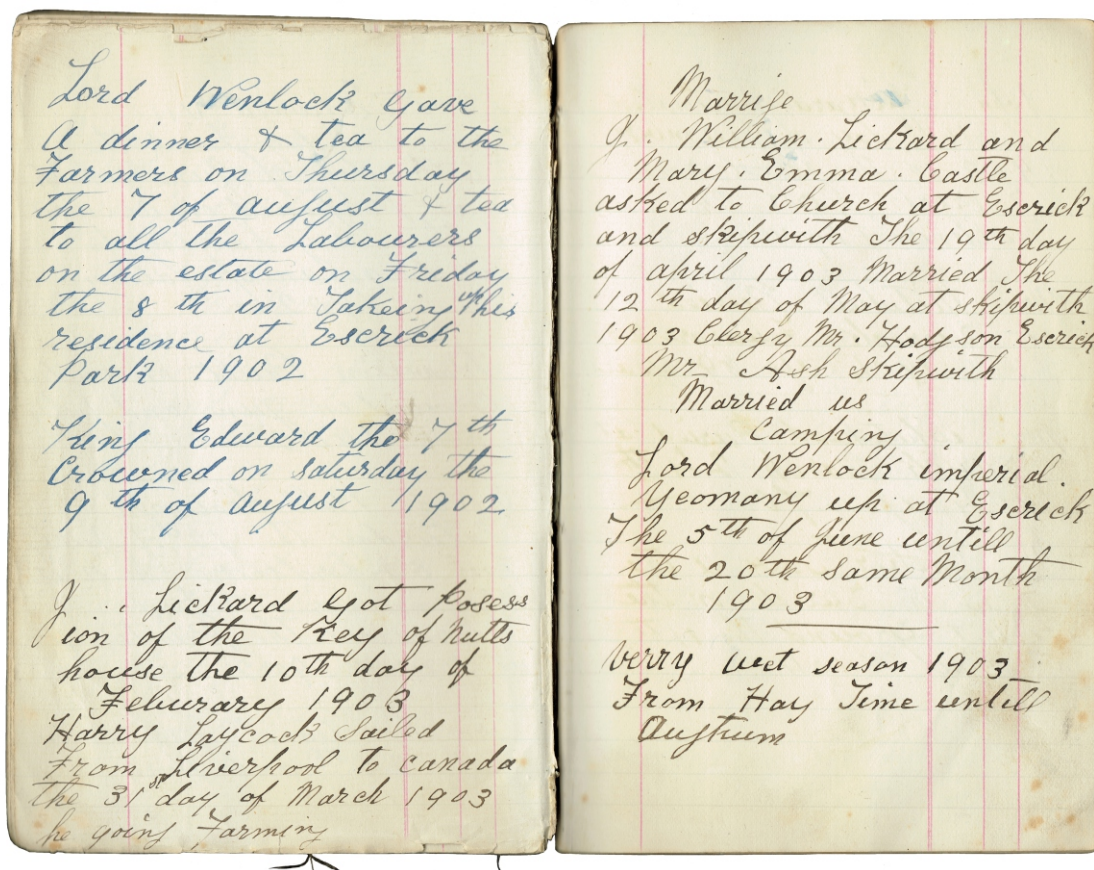 Lord Wenlock gave
a dinner & tea to the
Farmers on Thursday
the 7 of august & tea
to all the Labourers
on the estate on Friday
the 8 th in Takeing up his
residence at Escrick
Park 1902
King Edward the 7 th
Crowned on saturday the
9 th of august 1902
J. . Lickard got Posess
ion of the Key of Nutts
house the 10th day of
Feburary 1903
Harry Laycock Sailed
From Liverpool to canada
the 31st day of March 1903
he going Farming
Marrige
J. William. Lickard and
Mary. Emma. Castle
asked to Church at Escrick
and skipwith The 19th day
of april 1903 Married The
12 th day of May at skipwith
1903 Clergy Mr. Hodgson Escrick
Mr Ash Skipwith
Married us
Camping
Lord Wenlock imperial.
Yeomany up at Escrick
The 5th of June untill
the 20th Same Month
1903
Verry wet season 1903
From Hay Time untill